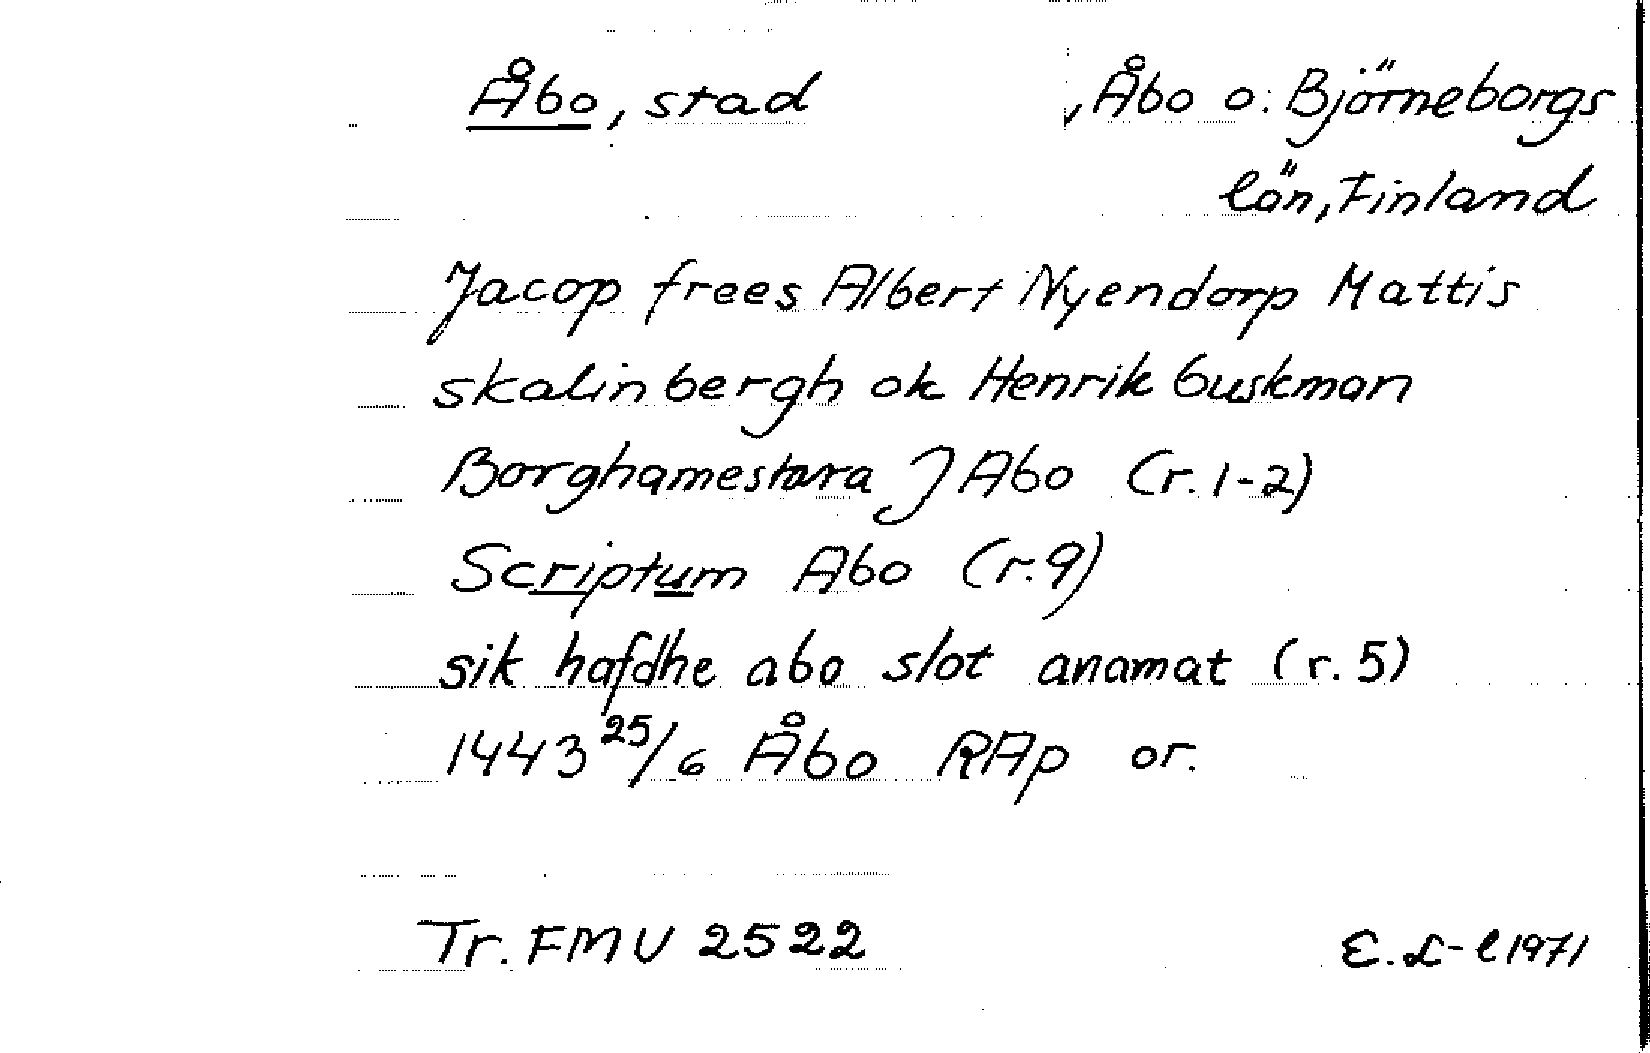 Åbo, stad , Åbo o. Björneborgs
län, Finland
Jacop frees Albert Nyendorp Mattis
skalinbergh ok Henrik Guskman
Borghamestara J Abo (r. 1-2)
Scriptum Abo (r. 9)
sik hafdhe abo slot anamat (r. 5)
1443 25/6 Åbo RAp or.
Tr. FMU 2522 E. L-l 1971